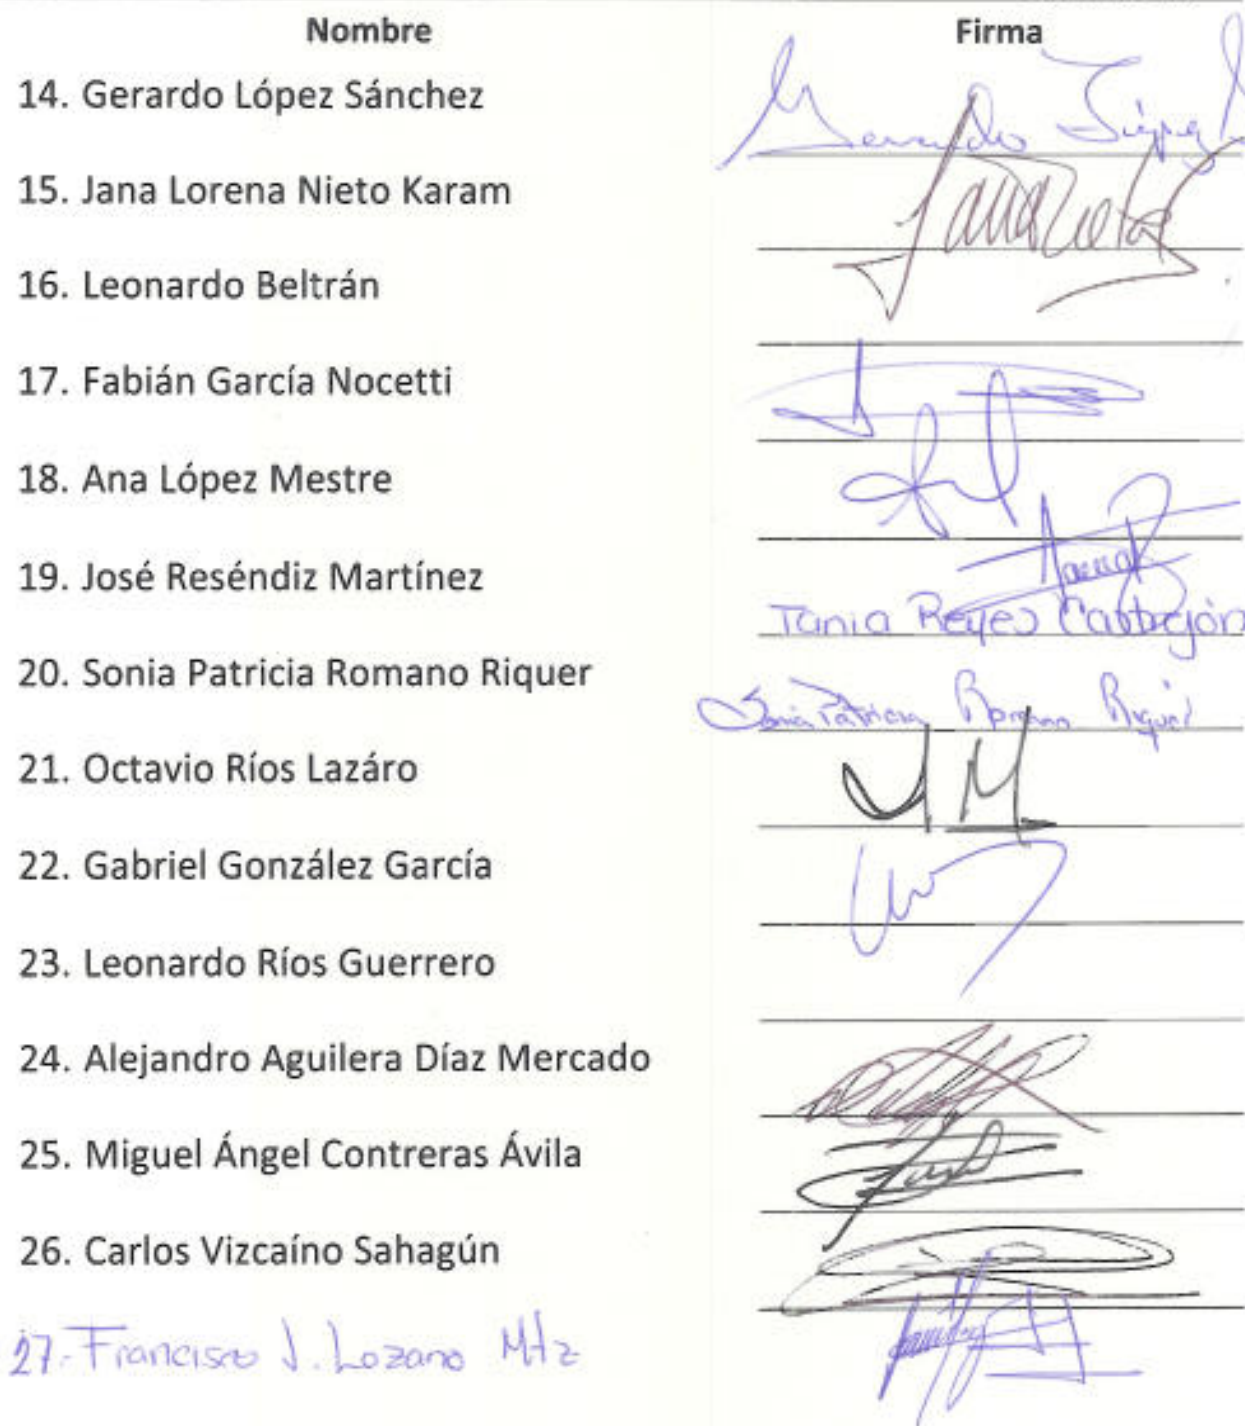 Nombre Firma
14. Gerardo López Sánchez Gerardo López
15. Jana Lorena Nieto Karam Jana Nieto
16. Leonardo Beltrán
17. Fabián García Nocetti
18. Ana López Mestre
19. José Reséndiz Martínez Tania Reyes Castrejón
20. Sonia Patricia Romano Riquer Sonia Patricia Romano Riquer
21. Octavio Ríos Lazáro
22. Gabriel González García
23. Leonardo Ríos Guerrero
24. Alejandro Aguilera Díaz Mercado
25. Miguel Ángel Contreras Ávila
26. Carlos Vizcaíno Sahagún
27. Francisco J. Lozano Mtz